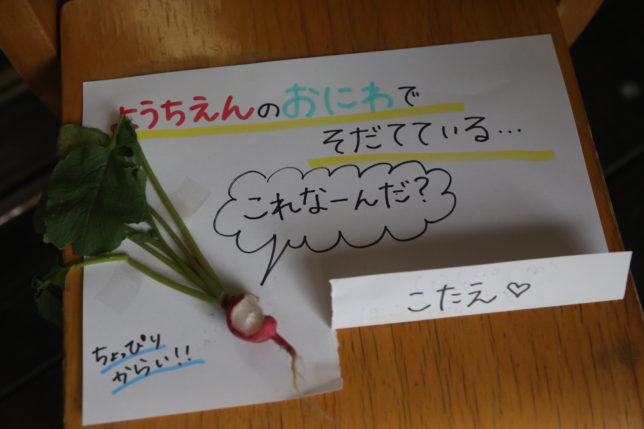 ようちえんのおにわで
そだてている…
これなーんだ?
こたえ♡
ちょっぴり
からい!!